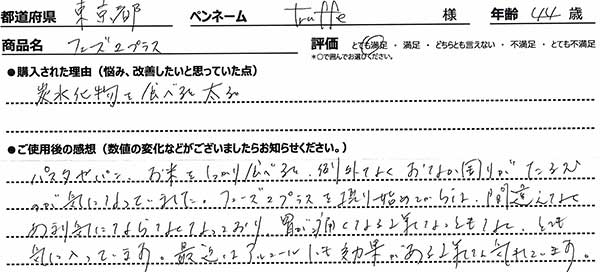 都道府県 東京都 ペンネーム truffe 様 年齢 44 歳
商品名 フェーズ2プラス 評価 とても満足 ・ 満足 ・ どちらとも言えない ・ 不満足 ・ とても不満足
*○で囲んでお選びください。
●購入された理由（悩み、改善したいと思っていた点）
炭水化物を食べると太る
●ご使用後の感想（数値の変化などがございましたらお知らせください。）
パスタやパン、お米をしっかり食べると、例外なく おなか周りが
気になっていました。フェーズ2プラスを摂り始めてからは、間違えなく
気にならなくなっており、胃が痛くなる
気に入っています。最近はアルコールにも効果がある